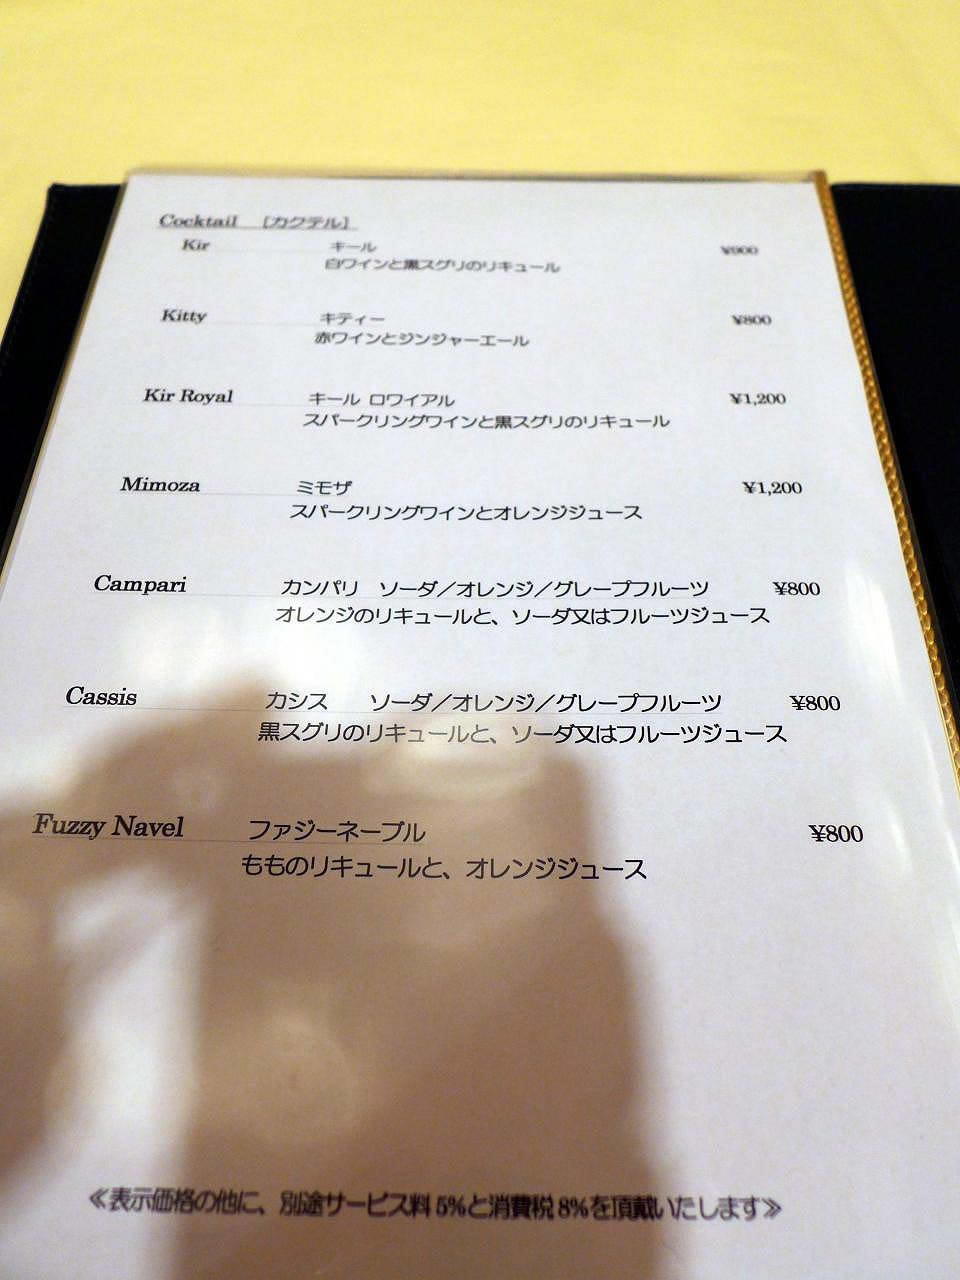 Cocktail [カクテル]
Kir キール ¥900
白ワインと黒スグリのリキュール
Kitty キティー ¥800
赤ワインとジンジャーエール
Kir Royal キール ロワイアル ¥1,200
スパークリングワインと黒スグリのリキュール
Mimoza ミモザ ¥1,200
スパークリングワインとオレンジジュース
Campari カンパリ ソーダ／オレンジ／グレープフルーツ ¥800
オレンジのリキュールと、ソーダ又はフルーツジュース
Cassis カシス ソーダ／オレンジ／グレープフルーツ ¥800
黒スグリのリキュールと、ソーダ又はフルーツジュース
Fuzzy Navel ファジーネーブル ¥800
もものリキュールと、オレンジジュース
≪表示価格の他に、別途サービス料5%と消費税8%を頂戴いたします≫